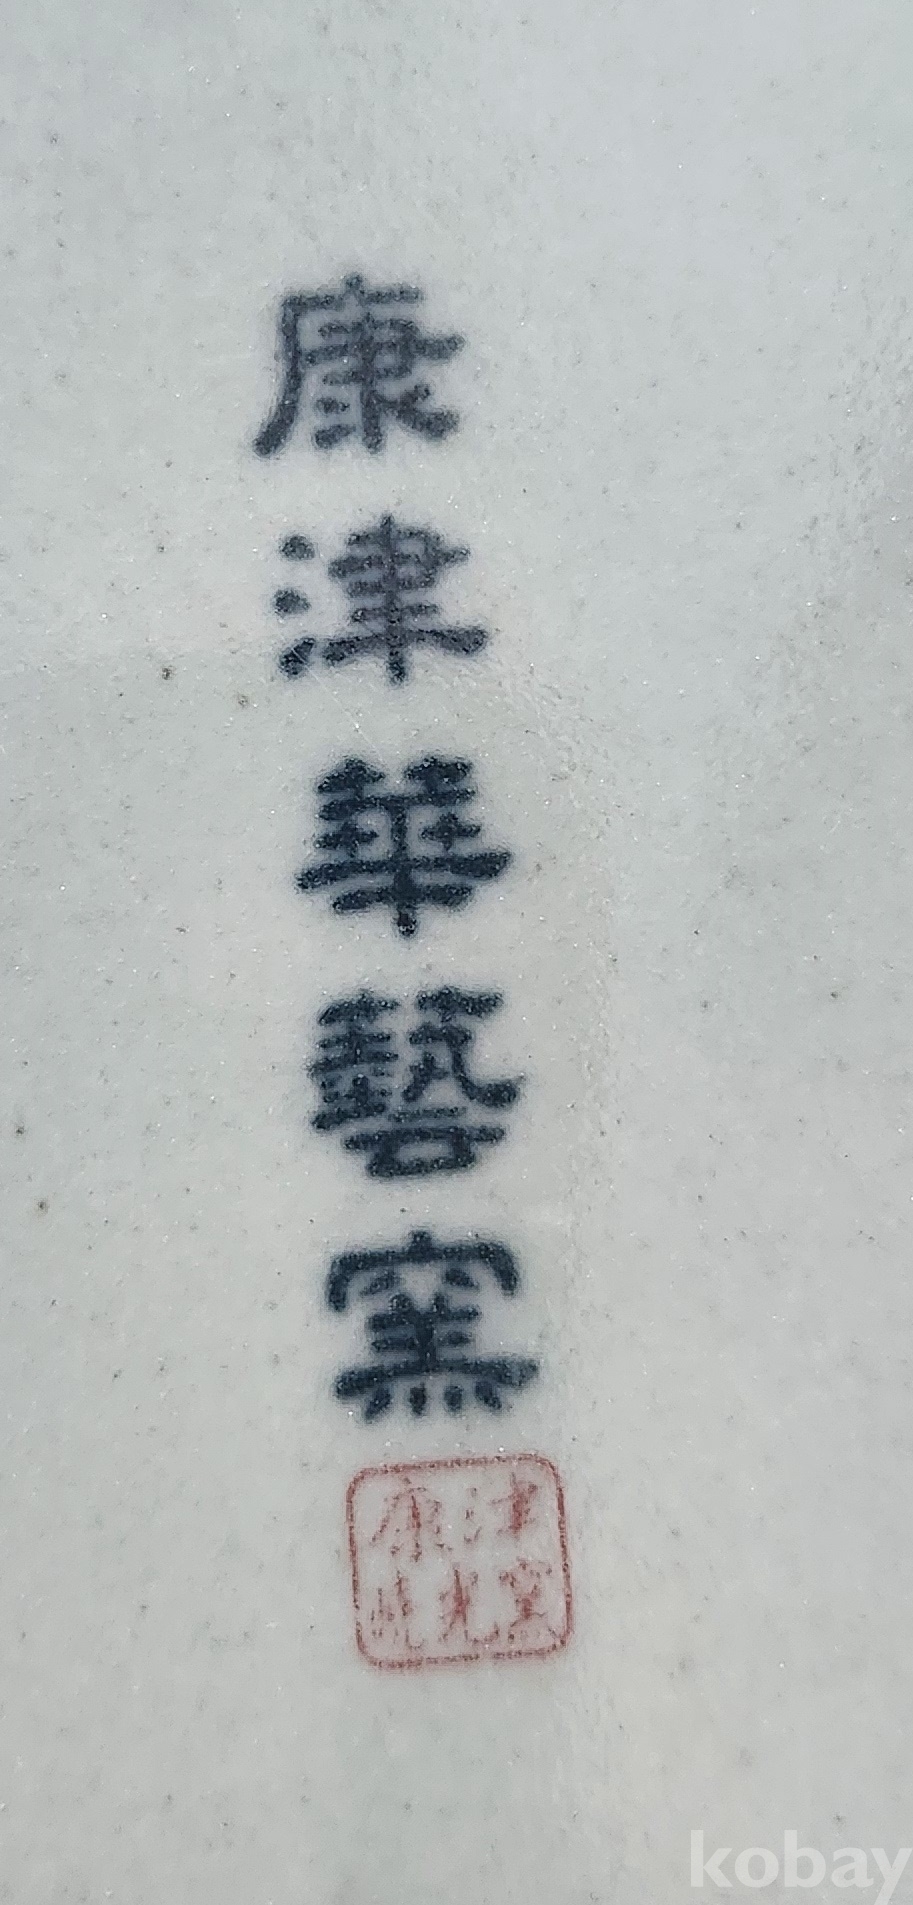 康津華藝窯
康津
曉光窯
kobay